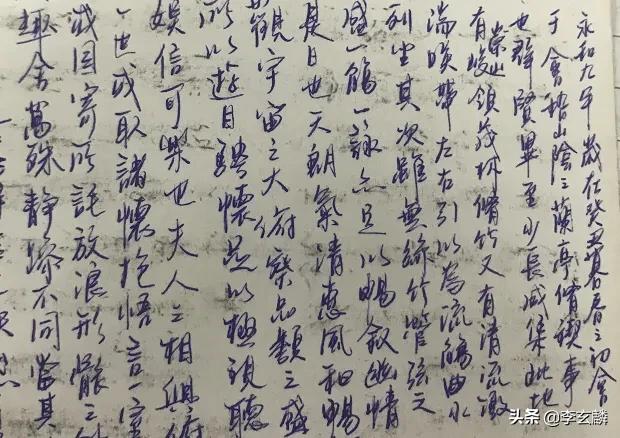 永和九年歲在癸丑暮春之初會
于會稽山陰之蘭亭脩禊事
也群賢畢至少長咸集此地
有崇山峻領茂林脩竹又有清流激
湍暎帶左右引以為流觴曲水
列坐其次雖無絲竹管弦之
盛一觴一詠亦足以暢叙幽情
是日也天朗氣清惠風和暢
觀宇宙之大俯察品類之盛
所以遊目騁懷足以極視聽
娛信可樂也夫人之相與俯
一世或取諸懷抱悟言一室
或因寄所託放浪形骸之外
趣舍萬殊静躁不同當其
头条 @李玄麟